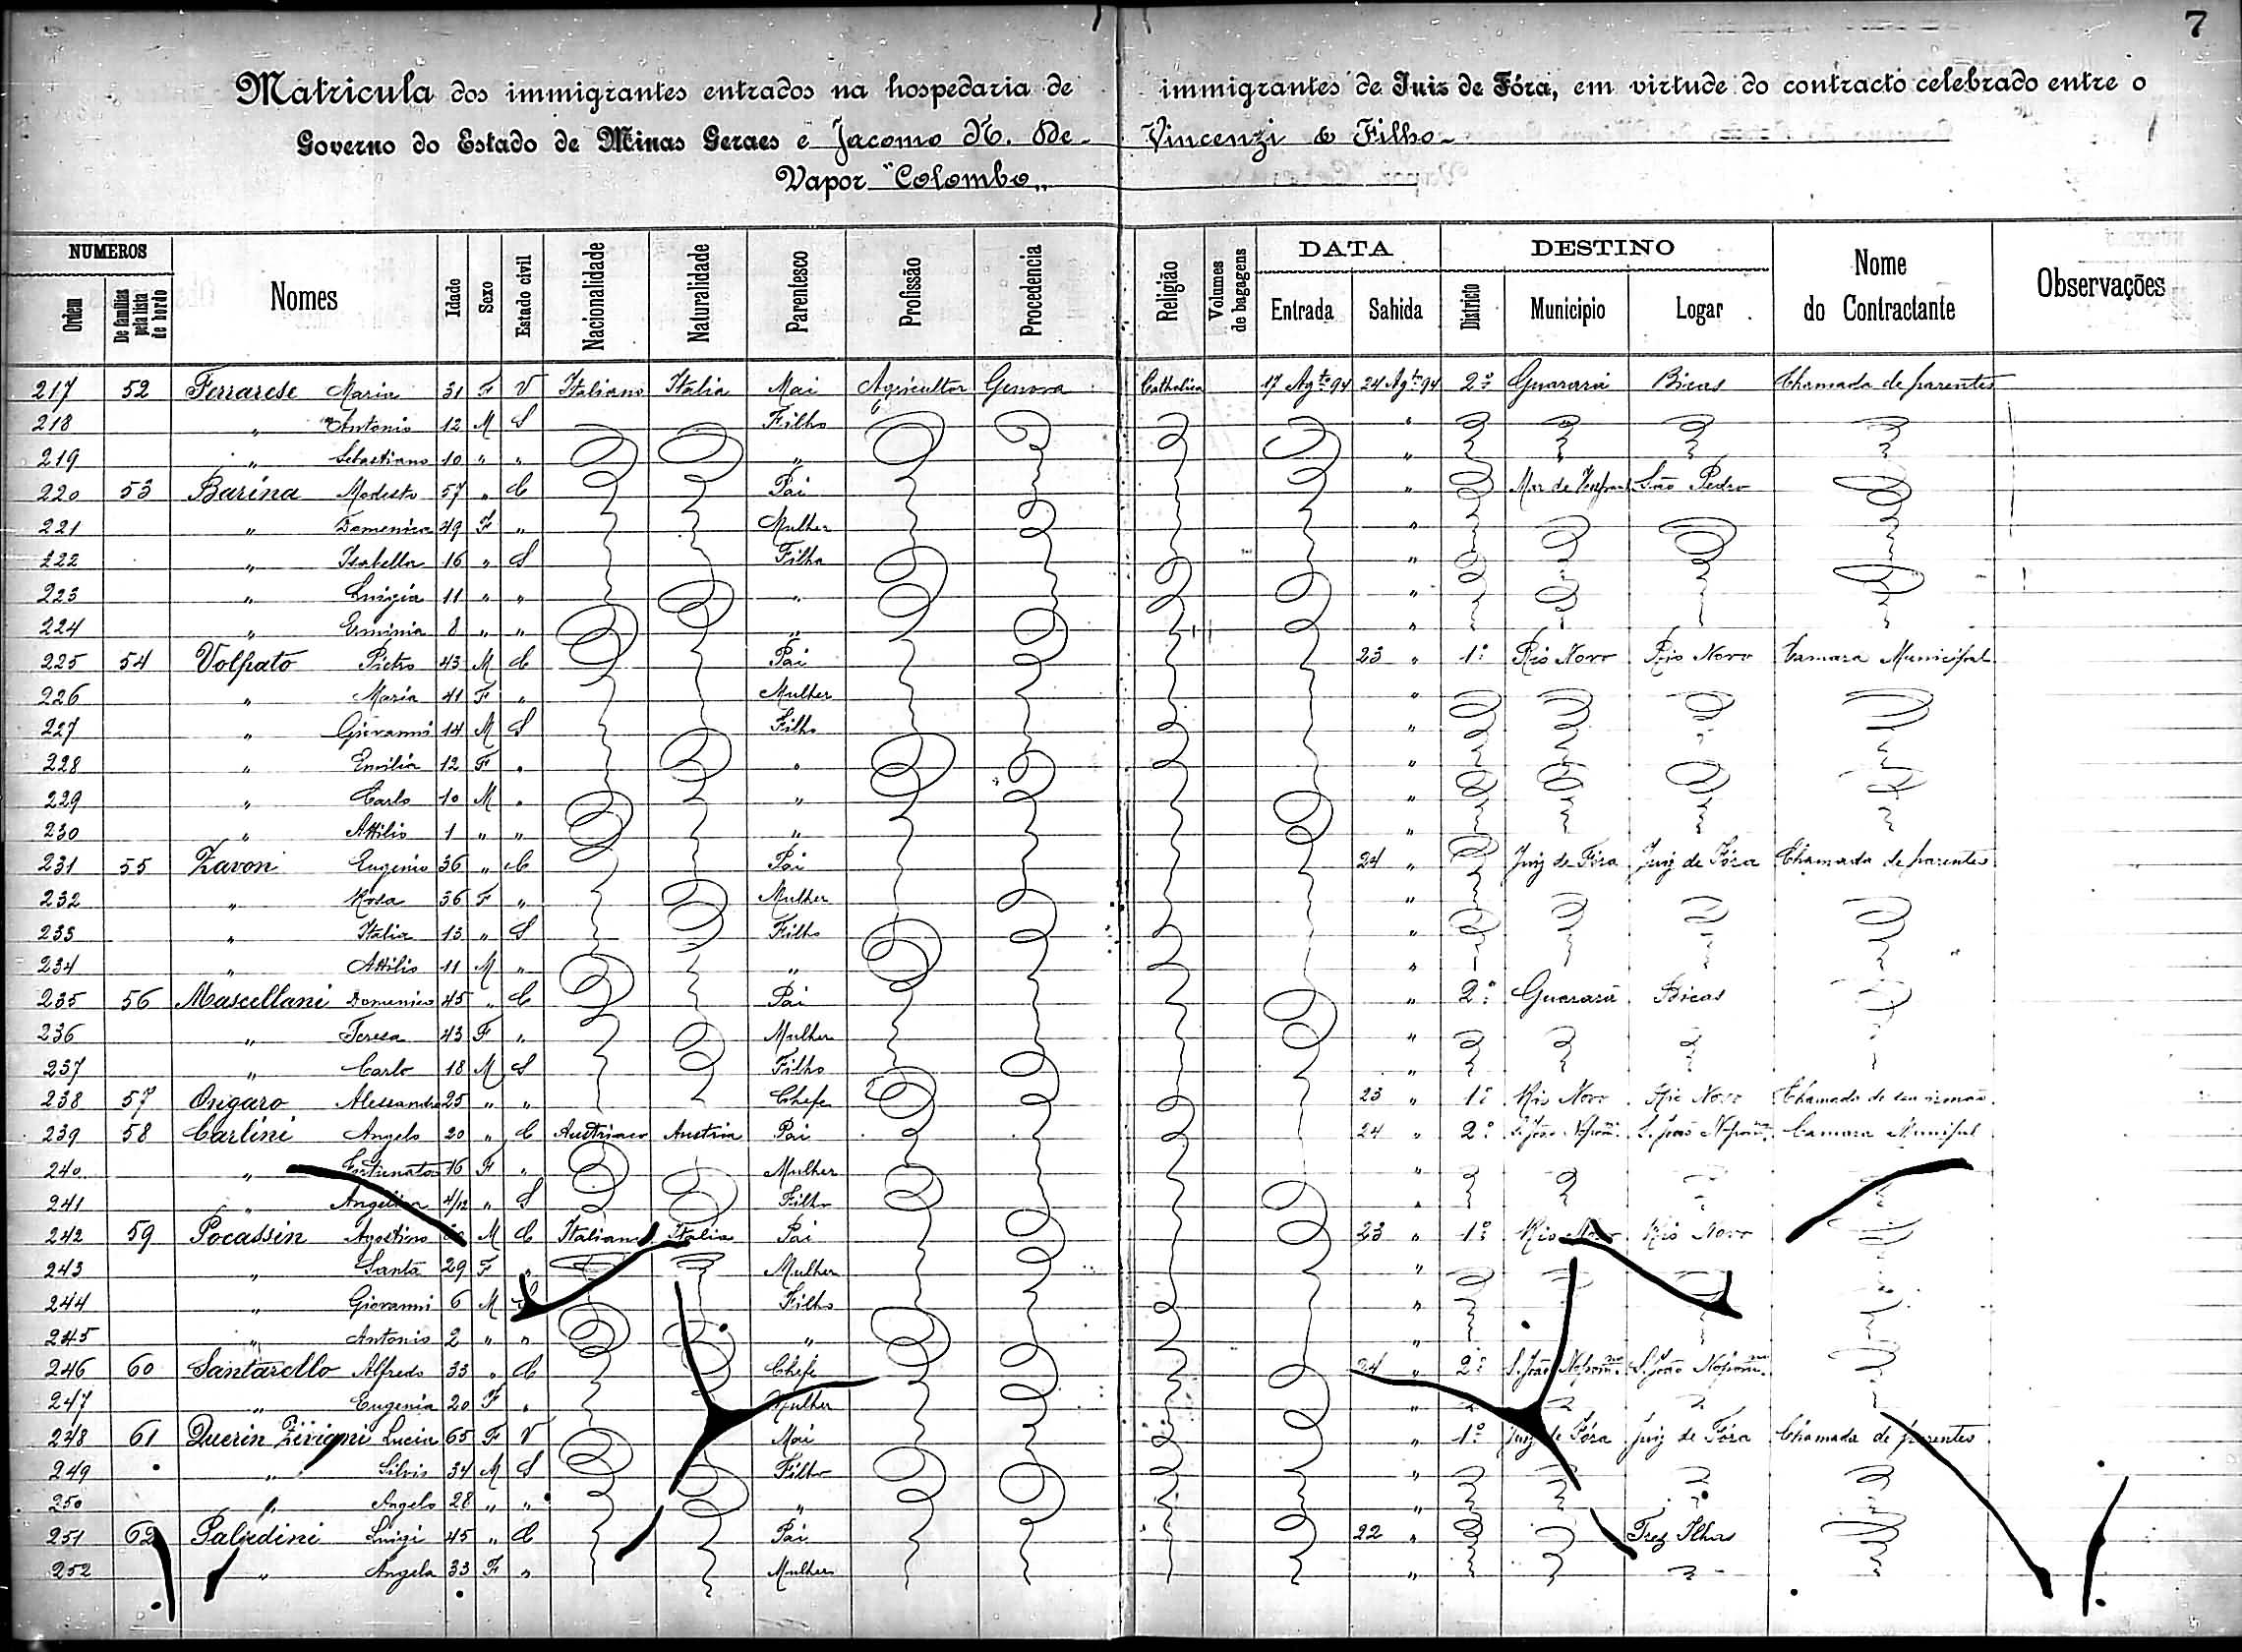 7
Matricula dos immigrantes entrados na hospedaria de immigrantes de Juiz de Fóra, em virtude do contracto celebrado entre o
Governo do Estado de Minas Geraes e Jacomo N. de Vincenzi & Filho
Vapor "Colombo"
NUMEROS DATA DESTINO
Ordem De familias pela lista de bordo Nomes Idade Sexo Estado civil Nacionalidade Naturalidade Parentesco Profissão Procedencia Religião Volumes de bagagens Entrada Sahida Districto Municipio Logar Nome do Contractante Observações
217 52 Ferrarese Maria 31 F V Italiano Italia Mai Agricultor Genova Catholica 17 Agto 94 24 Agto 94 2º Guarará Bicas Chamada de parentes
218 " Antonio 12 M S Filho "
219 " Sebastiano 10 " " " "
220 53 Barina Modesto 57 " C Pai " Mar de São Pedro
221 " Domenica 49 F " Mulher "
222 " Isabella 16 " S Filha "
223 " Luigia 11 " " " "
224 " Erminia 8 " " " "
225 54 Volpato Pietro 43 M C Pai 23 " 1º Rio Novo Rio Novo Camara Municipal
226 " Maria 41 F " Mulher "
227 " Giovanni 14 M S Filho "
228 " Emilia 12 F " " "
229 " Carlo 10 M " " "
230 " Attilio 1 " " " "
231 55 Zavoni Eugenio 36 " C Pai 24 " Juiz de Fóra Juiz de Fóra Chamada de parentes
232 " Rosa 36 F " Mulher "
233 " Italia 13 " S Filho "
234 " Attilio 11 M " " "
235 56 Mascellani Domenico 45 " C Pai " 2º Guarará Bicas
236 " Teresa 43 F " Mulher "
237 " Carlo 18 M S Filho "
238 57 Origaro Alessandro 25 " " Chefe 23 " 1º Rio Novo Rio Novo Chamada de seu irmão
239 58 Carlini Angelo 20 " C Austriaco Austria Pai 24 " 2º S. João Nepom. S. João Nepom. Camara Municipal
240 " Fortunata 16 F " Mulher "
241 " 4/12 " S Filho "
242 59 Pocassin Agostino M C Italiano Italia Pai 23 " 1º Rio Novo Rio Novo
243 " Santa 29 F " Mulher "
244 " Giovanni 6 M S Filho "
245 " Antonio 2 " " " "
246 60 Santarello Alfredo 33 " C Chefe 24 " 2º S. João Nepom. S. João Nepom.
247 " Eugenia 20 F " Mulher "
248 61 Querin Lucia 65 F V Mai " 1º Juiz de Fóra Juiz de Fóra Chamada de parentes
249 " Silvio 34 M S Filho "
250 " Angelo 28 " " " "
251 62 Paliedini Luigi 45 " C Pai 22 " Trez Ilhas
252 " Angela 33 F " Mulher "